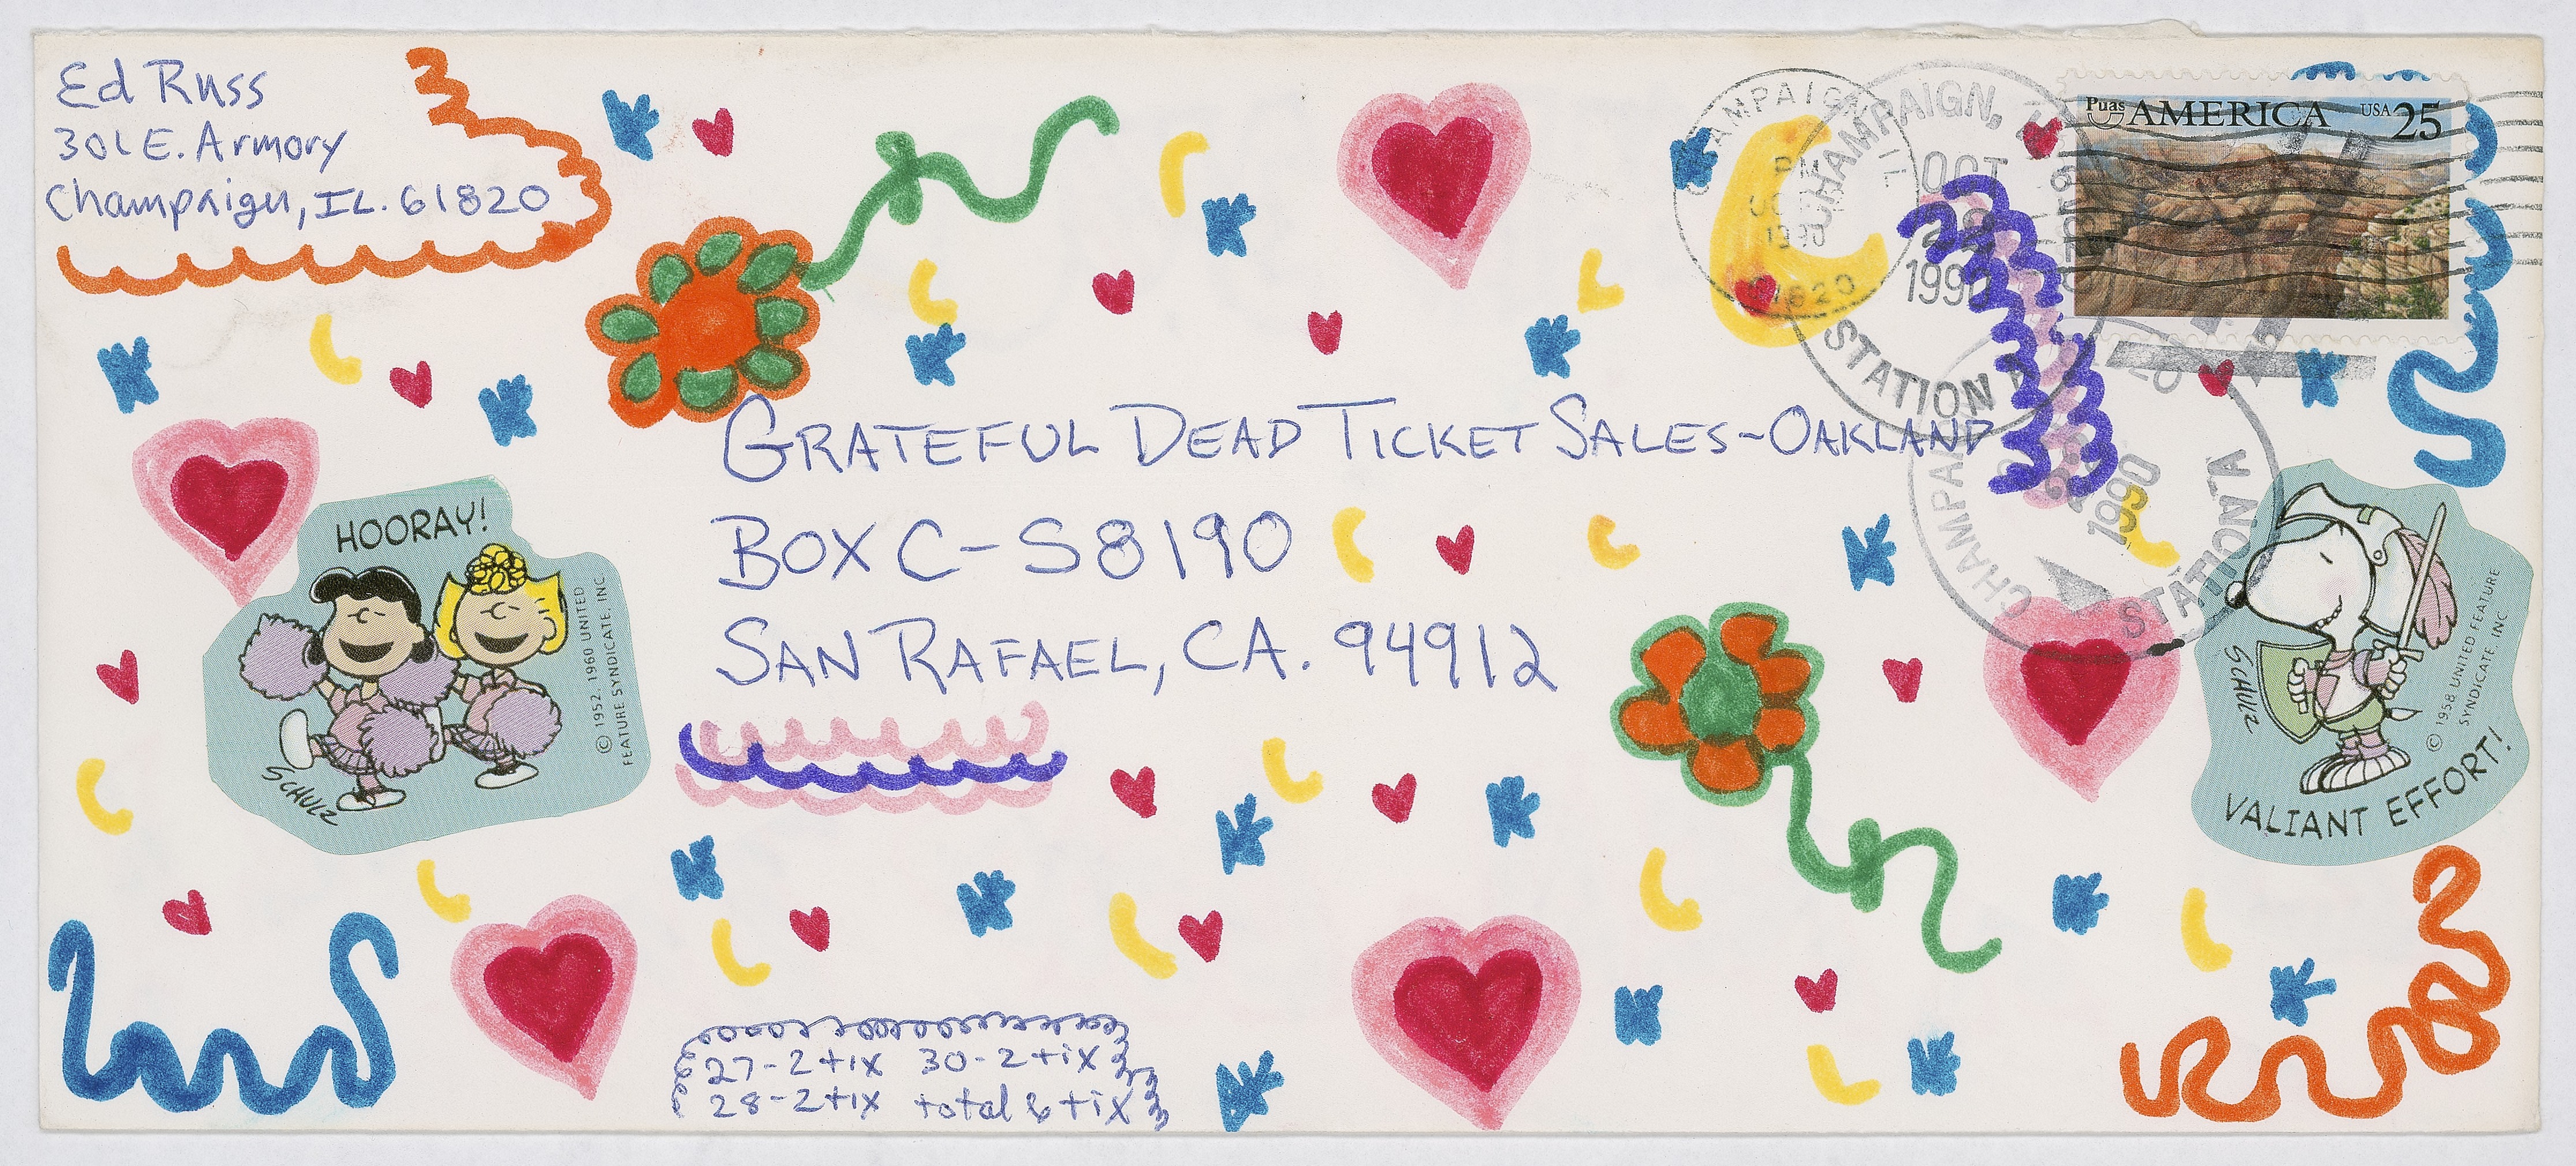 Ed Russ
301 E. Armory
Champaign, IL. 61820
CHAMPAIGN, IL
PM
OCT
1990
61820
CHAMPAIGN, IL
OCT
29
1990
STATION A
Puas AMERICA USA 25
GRATEFUL DEAD TICKET SALES-OAKLAND
BOX C-S8190
SAN RAFAEL, CA. 94912
CHAMPAIGN
1990
STATION A
HOORAY!
© 1952, 1960 UNITED
FEATURE SYNDICATE, INC
SCHULZ
SCHULZ
© 1958 UNITED FEATURE
SYNDICATE, INC
VALIANT EFFORT!
27-2tix 30-2tix
28-2tix total 6 tix